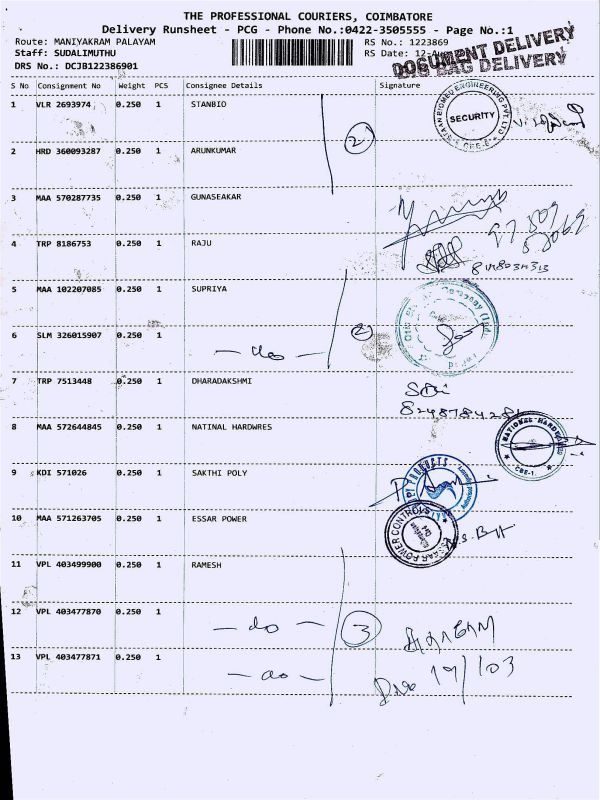 THE PROFESSIONAL COURIERS, COIMBATORE
Delivery Runsheet - PCG - Phone No.:0422-3505555 - Page No.:1
Route: MANIYAKRAM PALAYAM RS No.: 1223869
Staff: SUDALIMUTHU RS Date: 12-Aug
DRS No.: DCJB122386901
DOCUMENT DELIVERY
BAG DELIVERY
S No Consignment No Weight PCS Consignee Details Signature
1 VLR 2693974 0.250 1 STANBIO
SECURITY
2 HRD 360093287 0.250 1 ARUNKUMAR
3 MAA 570287735 0.250 1 GUNASEAKAR
4 TRP 8186753 0.250 1 RAJU
5 MAA 102207085 0.250 1 SUPRIYA
6 SLM 326015907 0.250 1 - do - 2
7 TRP 7513448 0.250 1 DHARADAKSHMI
8 MAA 572644845 0.250 1 NATINAL HARDWRES
NATIONAL HARDW
CBE-1.
9 KDI 571026 0.250 1 SAKTHI POLY
PRODUCTS
10 MAA 571263705 0.250 1 ESSAR POWER
ESSAR POWER CONTROLS
11 VPL 403499900 0.250 1 RAMESH
12 VPL 403477870 0.250 1 - do - 3
13 VPL 403477871 0.250 1 - do -
19/103